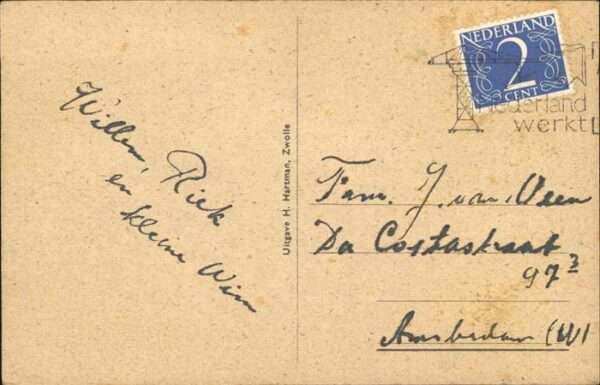 Willem, Riek
en kleine Wim
Uitgave H. Hartman, Zwolle
NEDERLAND
2
CENT
nederland
werkt
Fam. J. van Veen
Da Costastraat
97 3
Amsterdam (W)